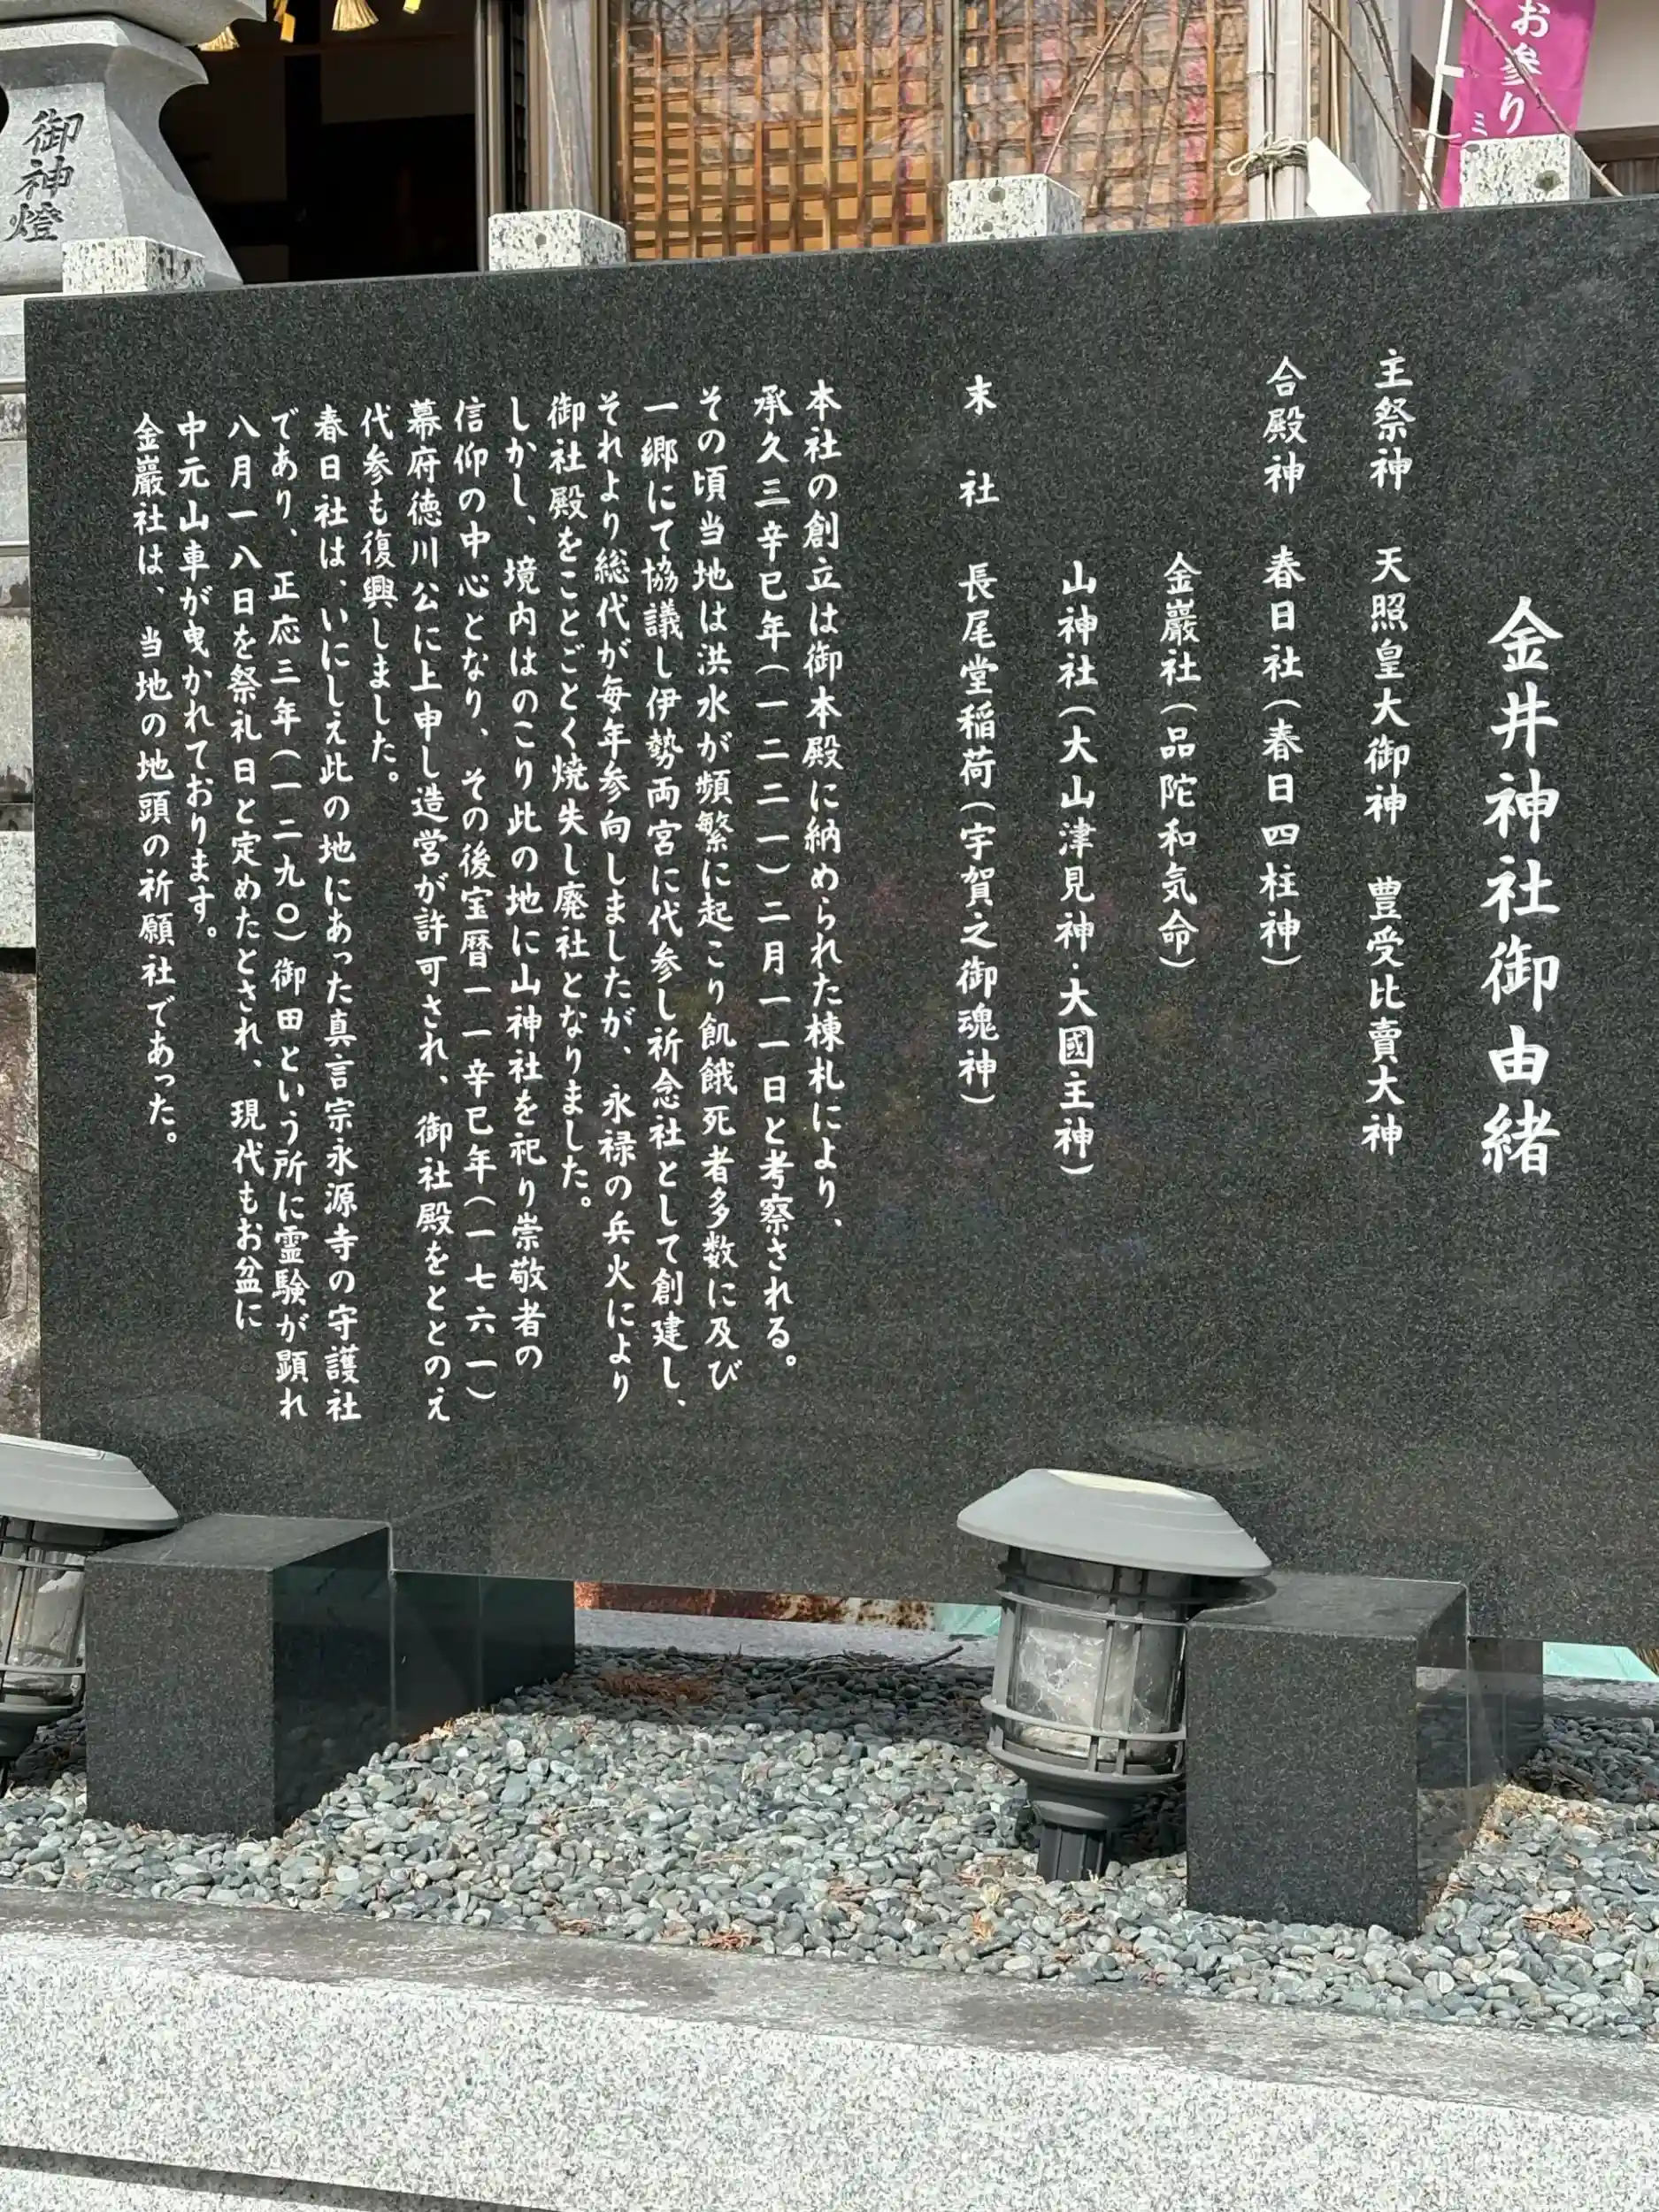 金井神社御由緒
主祭神　天照皇大御神　豊受比賣大神
合殿神　春日社（春日四柱神）
金巖社（品陀和気命）
山神社（大山津見神・大國主神）
末　社　長尾堂稲荷（宇賀之御魂神）
本社の創立は御本殿に納められた棟札により、
承久三辛巳年（一二二一）二月一一日と考察される。
その頃当地は洪水が頻繁に起こり飢餓死者多数に及び
一郷にて協議し伊勢両宮に代参し祈念社として創建し、
それより総代が毎年参向しましたが、永禄の兵火により
御社殿をことごとく焼失し廃社となりました。
しかし、境内はのこり此の地に山神社を祀り崇敬者の
信仰の中心となり、その後宝暦一一辛巳年（一七六一）
幕府徳川公に上申し造営が許可され、御社殿をととのえ
代参も復興しました。
春日社は、いにしえ此の地にあった真言宗永源寺の守護社
であり、正応三年（一二九〇）御田という所に霊験が顕れ
八月一八日を祭礼日と定めたとされ、現代もお盆に
中元山車が曳かれております。
金巖社は、当地の地頭の祈願社であった。
御神燈
お参り
ミ